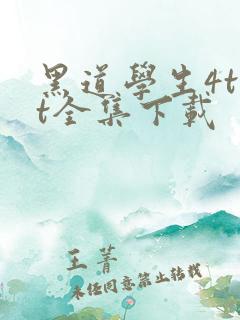 黑道學生4t
t全集下載
王菁
未经同意禁止转载